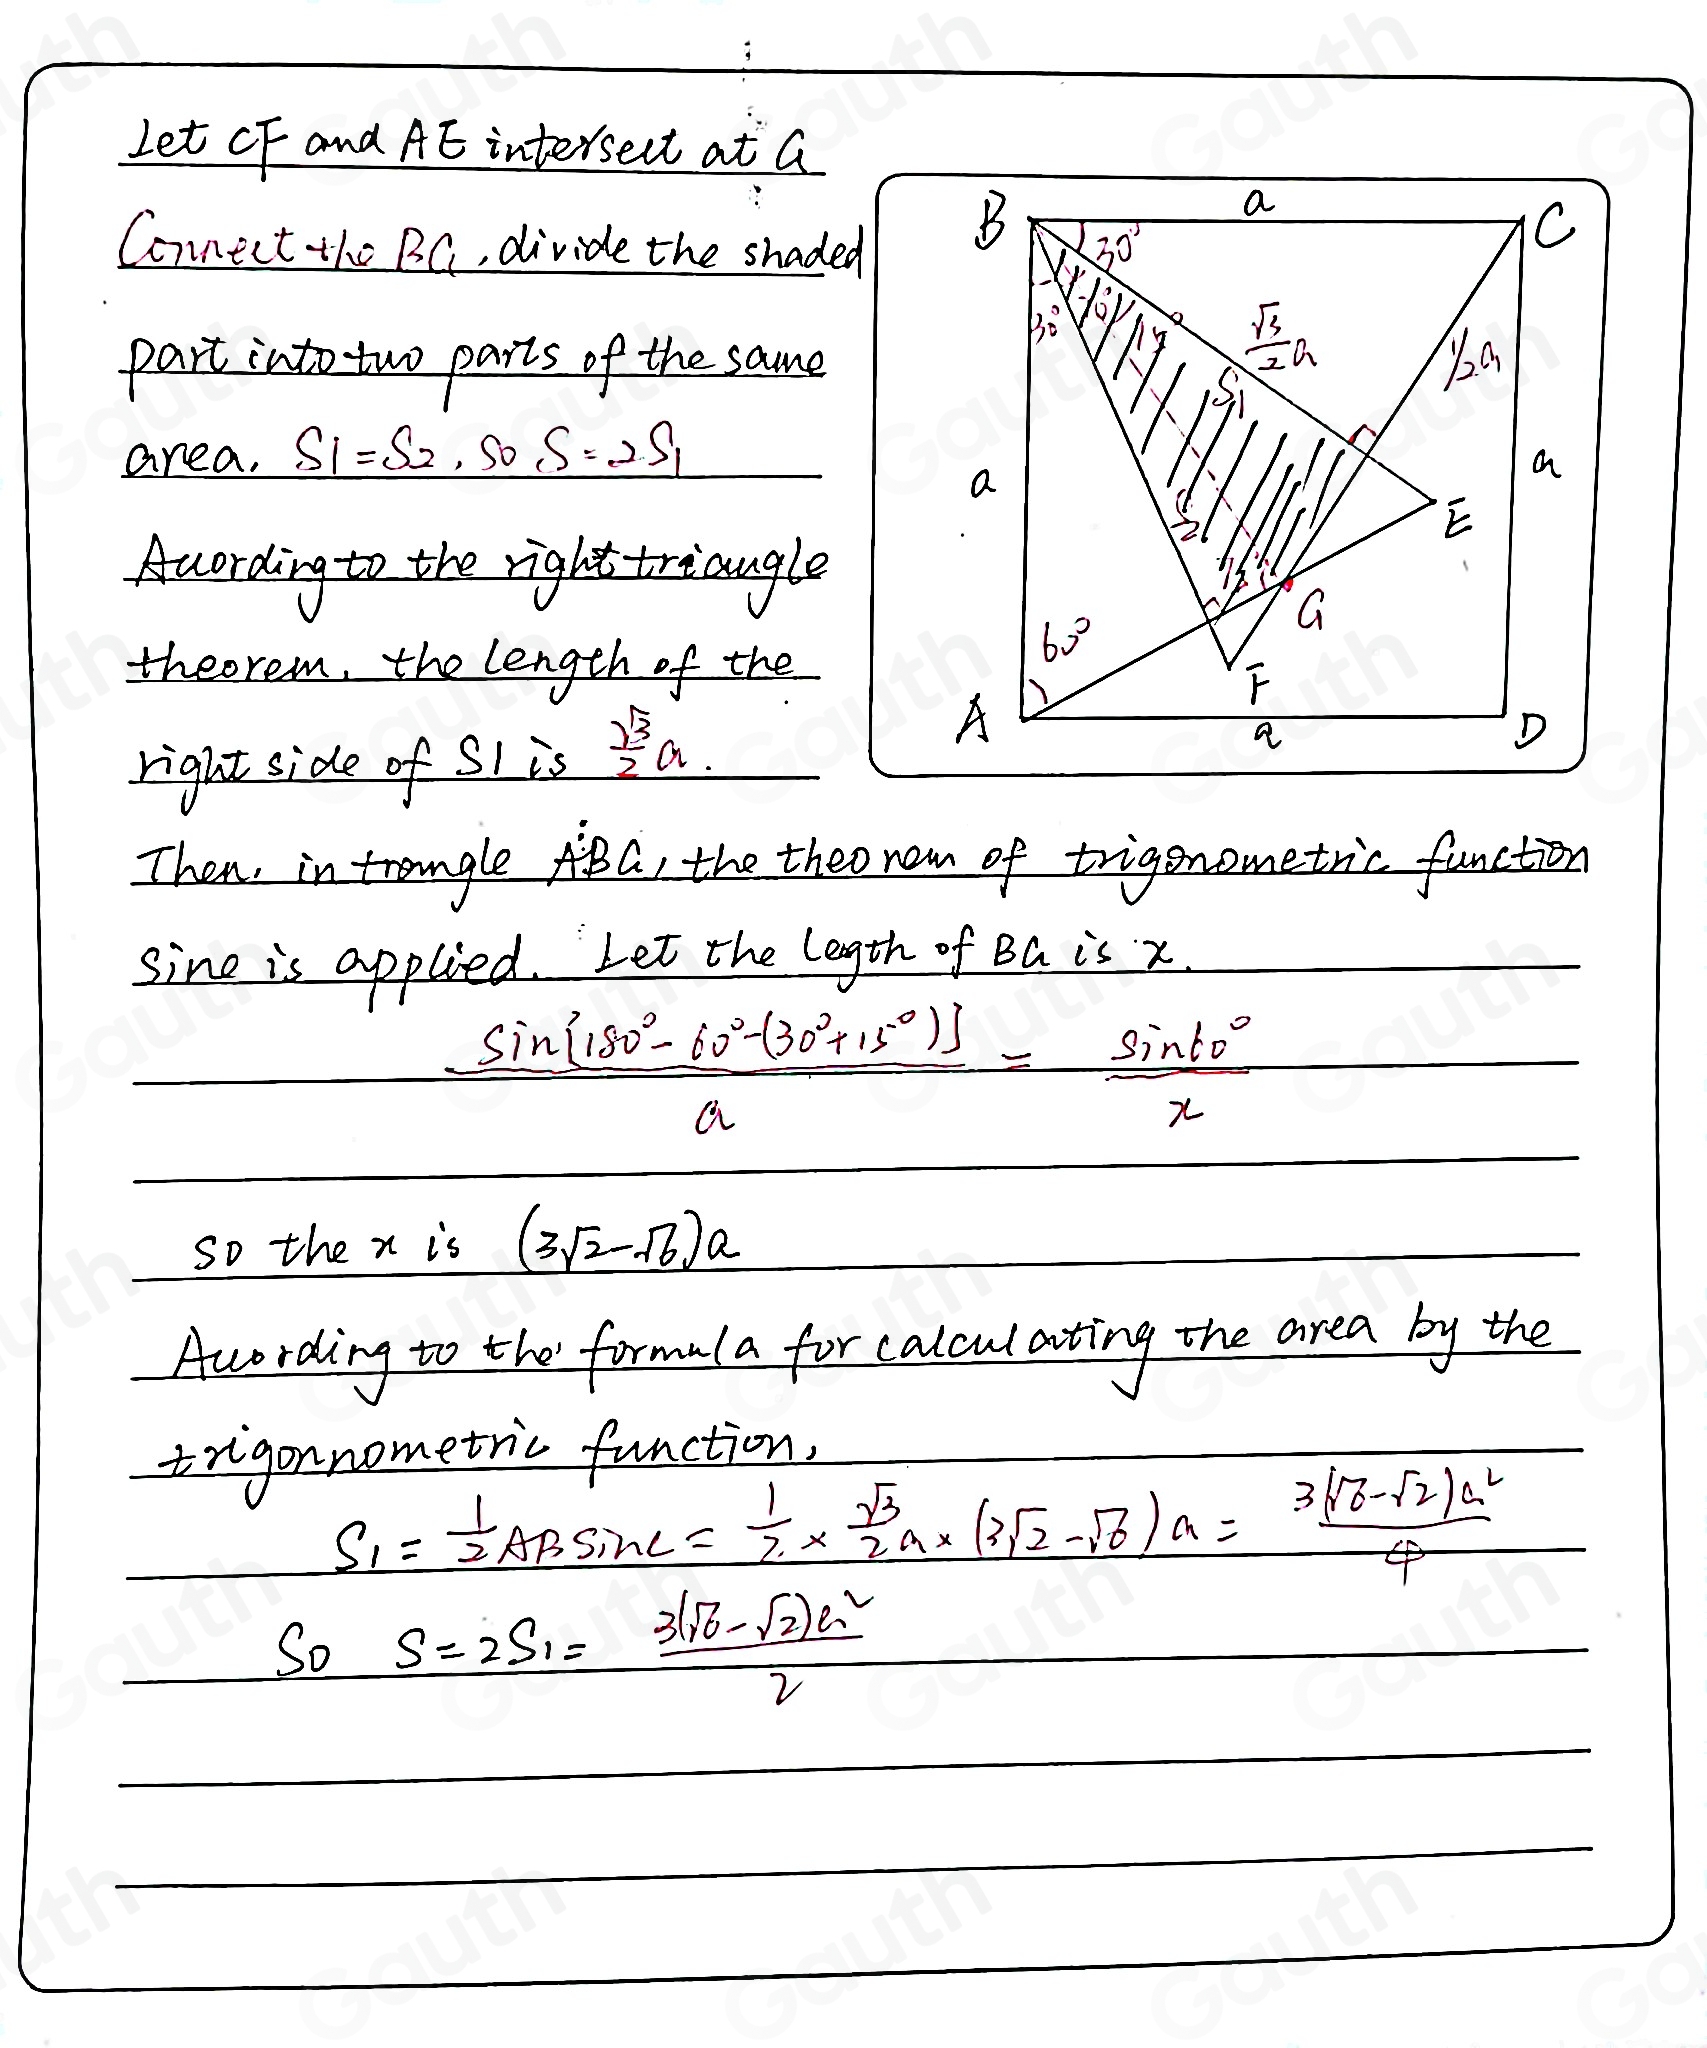 Let CF and AE intersect at G
Connect the BG, divide the shaded
part into two parts of the same
area. S1 = S2, so S = 2S1
Auording to the right triangle
theorem, the length of the
right side of S1 is √3/2 a.
B a C
30°
30° 15°
√3/2 a
1/2 a
S1
S2
a
a
E
G
60°
F
A a D
Then, in trangle ABG, the theorem of trigonometric function
sine is applied. Let the legth of BG is x.
sin[180° - 60° - (30° + 15°)] / a = sin60° / x
so the x is (3√2 - √6)a
Auording to the formula for calculating the area by the
trigonnometric function,
S1 = 1/2 AB sinC = 1/2 × √3/2 a × (3√2 - √6) a = 3(√6 - √2)a² / 4
So S = 2S1 = 3(√6 - √2)a² / 2
Gauth